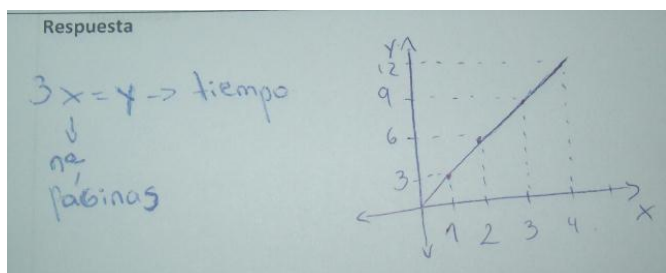 Respuesta
3x = y -> tiempo
↓
nº
páginas
Y
12
9
6
3
1 2 3 4
X